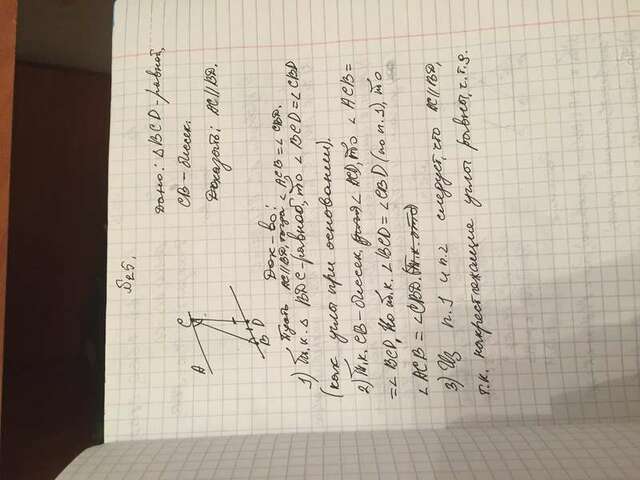 №25.
Дано: △BCD-равноб,
CB-биссек.
Доказать: AC∥BD.
A
C
B D
Док-во:
Пусть AC∥BD, тогда ∠ACB=∠CBD.
1) Т.к. △ BDC-равноб, то ∠BCD=∠CBD
(как углы при основании).
2) Т.к. CB-биссек, ∠ACD, то ∠ACB=
=∠BCD, Но т.к. ∠BCD=∠CBD (по п.1), то
∠ACB=∠CBD. (т.к. это)
3) Из п.1 и п.2 следует, что AC∥BD,
т.к. накрестлежащие углы равны, ч.т.д.